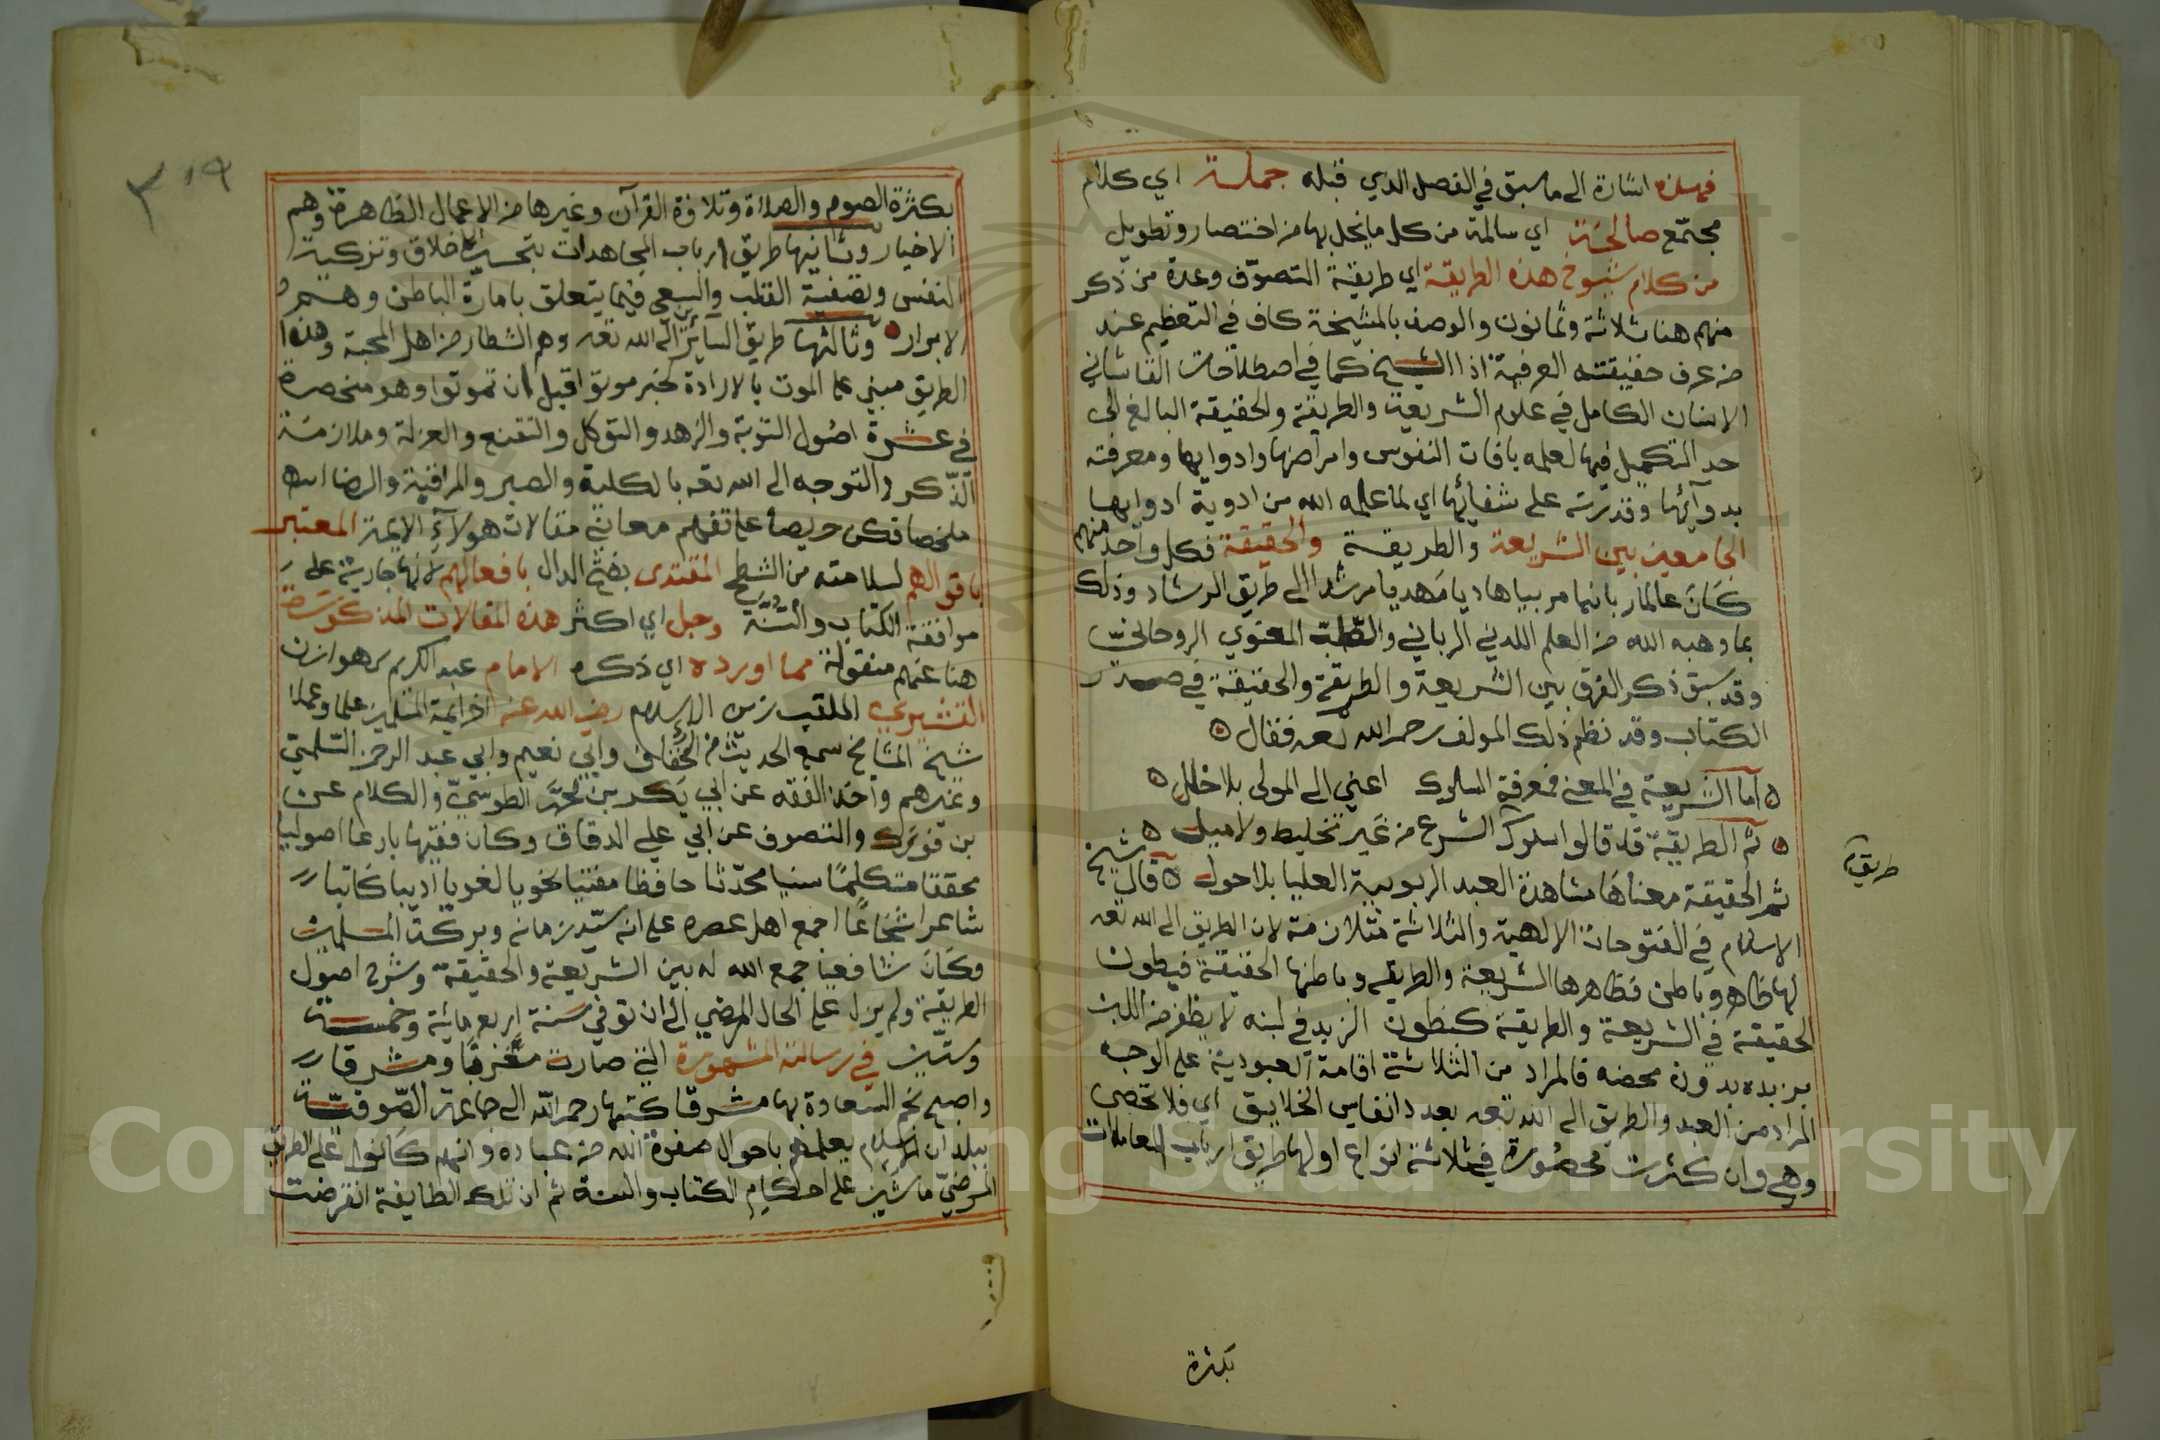 فهذه اشارة الى ما سبق في الفصل الذي قبله جملة اي كلام
مجتمع صالحة اي سالمة من كل ما يخل بها من اختصار وتطويل
من كلام شيوخ هذه الطريقة اي طريقة التصوف وعدة من ذكر
منهم هنا ثلاثة وثمانون والوصف بالمشيخة كاف في التعظيم عند
من عرف حقيقته العرفية اذ الشيخ كما في اصطلاحات القاشاني
الانسان الكامل في علوم الشريعة والطريقة والحقيقة البالغ الى
حد التكميل فيها لعلمه بافات النفوس وامراضها وادوايها ومعرفته
بدوآئها وقدرته على شفائها اي لما علمه الله من ادوية ادوايها
الجامعين بين الشريعة والطريقة والحقيقة فكل واحد منهم
كان عالما ربانيا مربيا هاديا مهديا مرشدا الى طريق الرشاد وذلك
بما وهبه الله من العلم اللدني الرباني والطب المعنوي الروحاني
وقد سبق ذكر الفرق بين الشريعة والطريقة والحقيقة في صدر
الكتاب وقد نظم ذلك المولف رحمه الله تعه فقال
اما الشريعة في المعنى فمعرفة السلوك اعني الى المولى بلا خلل
ثم الطريقة قد قالوا سلوك الشرع من غير تخليط ولا ميل
طريق
ثم الحقيقة معناها مشاهدة العبد الربوبية العليا بلا حول قال شيخ
الاسلام في الفتوحات الالهية والثلاثة متلازمة لان الطريق الى الله تعه
لها ظاهر وباطن فظاهرها الشريعة والطريقة وباطنها الحقيقة فبطون
الحقيقة في الشريعة والطريقة كبطون الزبد في لبنه لا يظفر من اللبن
بزبده بدون مخضه فالمراد من الثلاثة اقامة العبودية على الوجه
المراد من العبد والطريق الى الله تعه بعدد انفاس الخلايق اي فلا تحصى
وهي وان كثرت محصورة في ثلاثة انواع اولها طريق ارباب المعاملات
بكثرة
٣١٩
بكثرة الصوم والصلاة وتلاوة القرآن وغيرها من الاعمال الظاهرة وهم
الاخيار وثانيها طريق ارباب المجاهدات بتحسين الاخلاق وتزكية
النفس وتصفية القلب والسعي فيما يتعلق بامارة الباطن وهم
الابرار وثالثها طريق السائر الى الله تعه وهم الشطار من اهل المحبة وهذا
الطريق مبني على الموت بالارادة لخبر موتوا قبل ان تموتوا وهو منحصرة
في عشرة اصول التوبة والزهد والتوكل والتقنع والعزلة وملازمة
الذكر والتوجه الى الله تعه بالكلية والصبر والمراقبة والرضا انتهى
ملخصا فكن حريصا على تفهم معاني مقالات هولآء الايمة المعتبر
باقوالهم لسلامته من الشطح المقتدى بفتح الدال بافعالهم لانها جارية على
موافقة الكتاب والسنة وجل اي اكثر هذه المقالات المذكورة
هنا عنهم منقولة مما اورده اي ذكره الامام عبد الكريم بن هوازن
القشيري الملقب بزين الاسلام رضي الله عنه احد ايمة المسلمين علما وعملا
شيخ المشايخ سمع الحديث من الخفاف وابي نعيم وابي عبد الرحمن السلمي
وغيرهم واخذ الفقه عن ابي بكر بن محمد الطوسي والكلام عن
بن فورك والتصوف عن ابي علي الدقاق وكان فقيها بارعا اصوليا
محققا متكلما سنيا محدثا حافظا مفتيا نحويا لغويا اديبا كاتبا
شاعرا شجاعا اجمع اهل عصره على انه سيد زمانه وبركة المسلمين
وكان شافعيا جمع الله له بين الشريعة والحقيقة وشرح اصول
الطريقة ولم يزل على الحال المرضي الى ان توفي سنة اربعمائة وخمسة
وستين في رسالته المشهورة التي صارت مغربا ومشرقا
واصبح نجم السعادة بها مشرقا كتبها رحمه الله الى جماعة الصوفية
ببلدان الاسلام يعلمهم باحوال صفوة الله من عباده وانهم كانوا على الطريق
المرضي ماشين على احكام الكتاب والسنة ثم ان تلك الطايفة انقرضت
Copyright © King Saud University